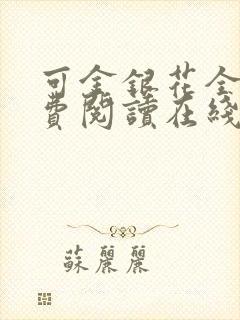 可金銀花全
費閱讀在綫
蘇麗麗